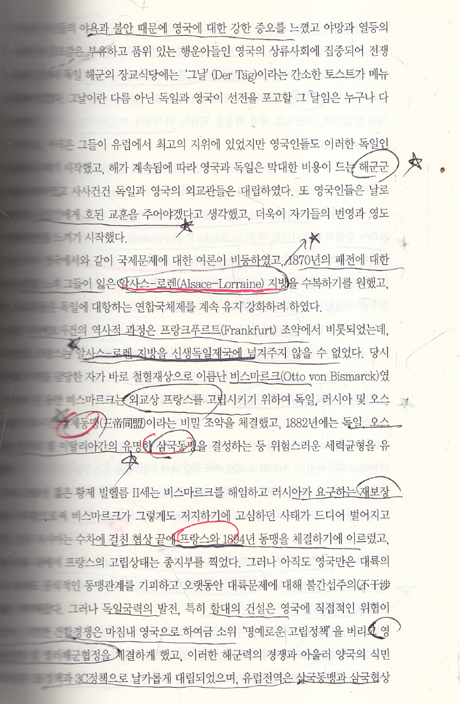 야욕과 불안 때문에 영국에 대한 강한 증오를 느꼈고 야망과 열등의
부유하고 품위 있는 행운아들인 영국의 상류사회에 집중되어 전쟁
독일 해군의 장교식당에는 '그날' (Der Täg)이라는 간소한 토스트가 메뉴
그날이란 다름 아닌 독일과 영국이 선전을 포고할 그 날임은 누구나 다
그들이 유럽에서 최고의 지위에 있었지만 영국인들도 이러한 독일인
시작했고, 해가 계속됨에 따라 영국과 독일은 막대한 비용이 드는 해군군
사사건건 독일과 영국의 외교관들은 대립하였다. 또 영국인들은 날로
호된 교훈을 주어야겠다고 생각했고, 더욱이 자기들의 번영과 영도
시작했다.
와 같이 국제문제에 대한 여론이 비등하였고, 1870년의 패전에 대한
그들이 잃은 알사스-로렌(Alsace-Lorraine) 지방을 수복하기를 원했고,
독일에 대항하는 연합국체제를 계속 유지 강화하려 하였다.
사건의 역사적 과정은 프랑크푸르트(Frankfurt) 조약에서 비롯되었는데,
알사스-로렌 지방을 신생독일제국에 넘겨주지 않을 수 없었다. 당시
담당한 자가 바로 철혈재상으로 이름난 비스마르크(Otto von Bismarck)였
비스마르크는 외교상 프랑스를 고립시키기 위하여 독일, 러시아 및 오스
동맹(三帝同盟)이라는 비밀 조약을 체결했고, 1882년에는 독일, 오스
및 이탈리아간의 유명한 삼국동맹을 결성하는 등 위험스러운 세력균형을 유
젊은 황제 빌헬름 II세는 비스마르크를 해임하고 러시아가 요구하는 재보장
비스마르크가 그렇게도 저지하기에 고심하던 사태가 드디어 벌어지고
수차에 걸친 협상 끝에 프랑스와 1894년 동맹을 체결하기에 이르렀고,
프랑스의 고립상태는 종지부를 찍었다. 그러나 아직도 영국만은 대륙의
동맹관계를 기피하고 오랫동안 대륙문제에 대해 불간섭주의(不干涉
그러나 독일국력의 발전, 특히 함대의 건설은 영국에 직접적인 위협이
건함경쟁은 마침내 영국으로 하여금 소위 "명예로운 고립정책"을 버리고 영
해군협정을 체결하게 했고, 이러한 해군력의 경쟁과 아울러 양국의 식민
정책과 3C정책으로 날카롭게 대립되었으며, 유럽전역은 삼국동맹과 삼국협상